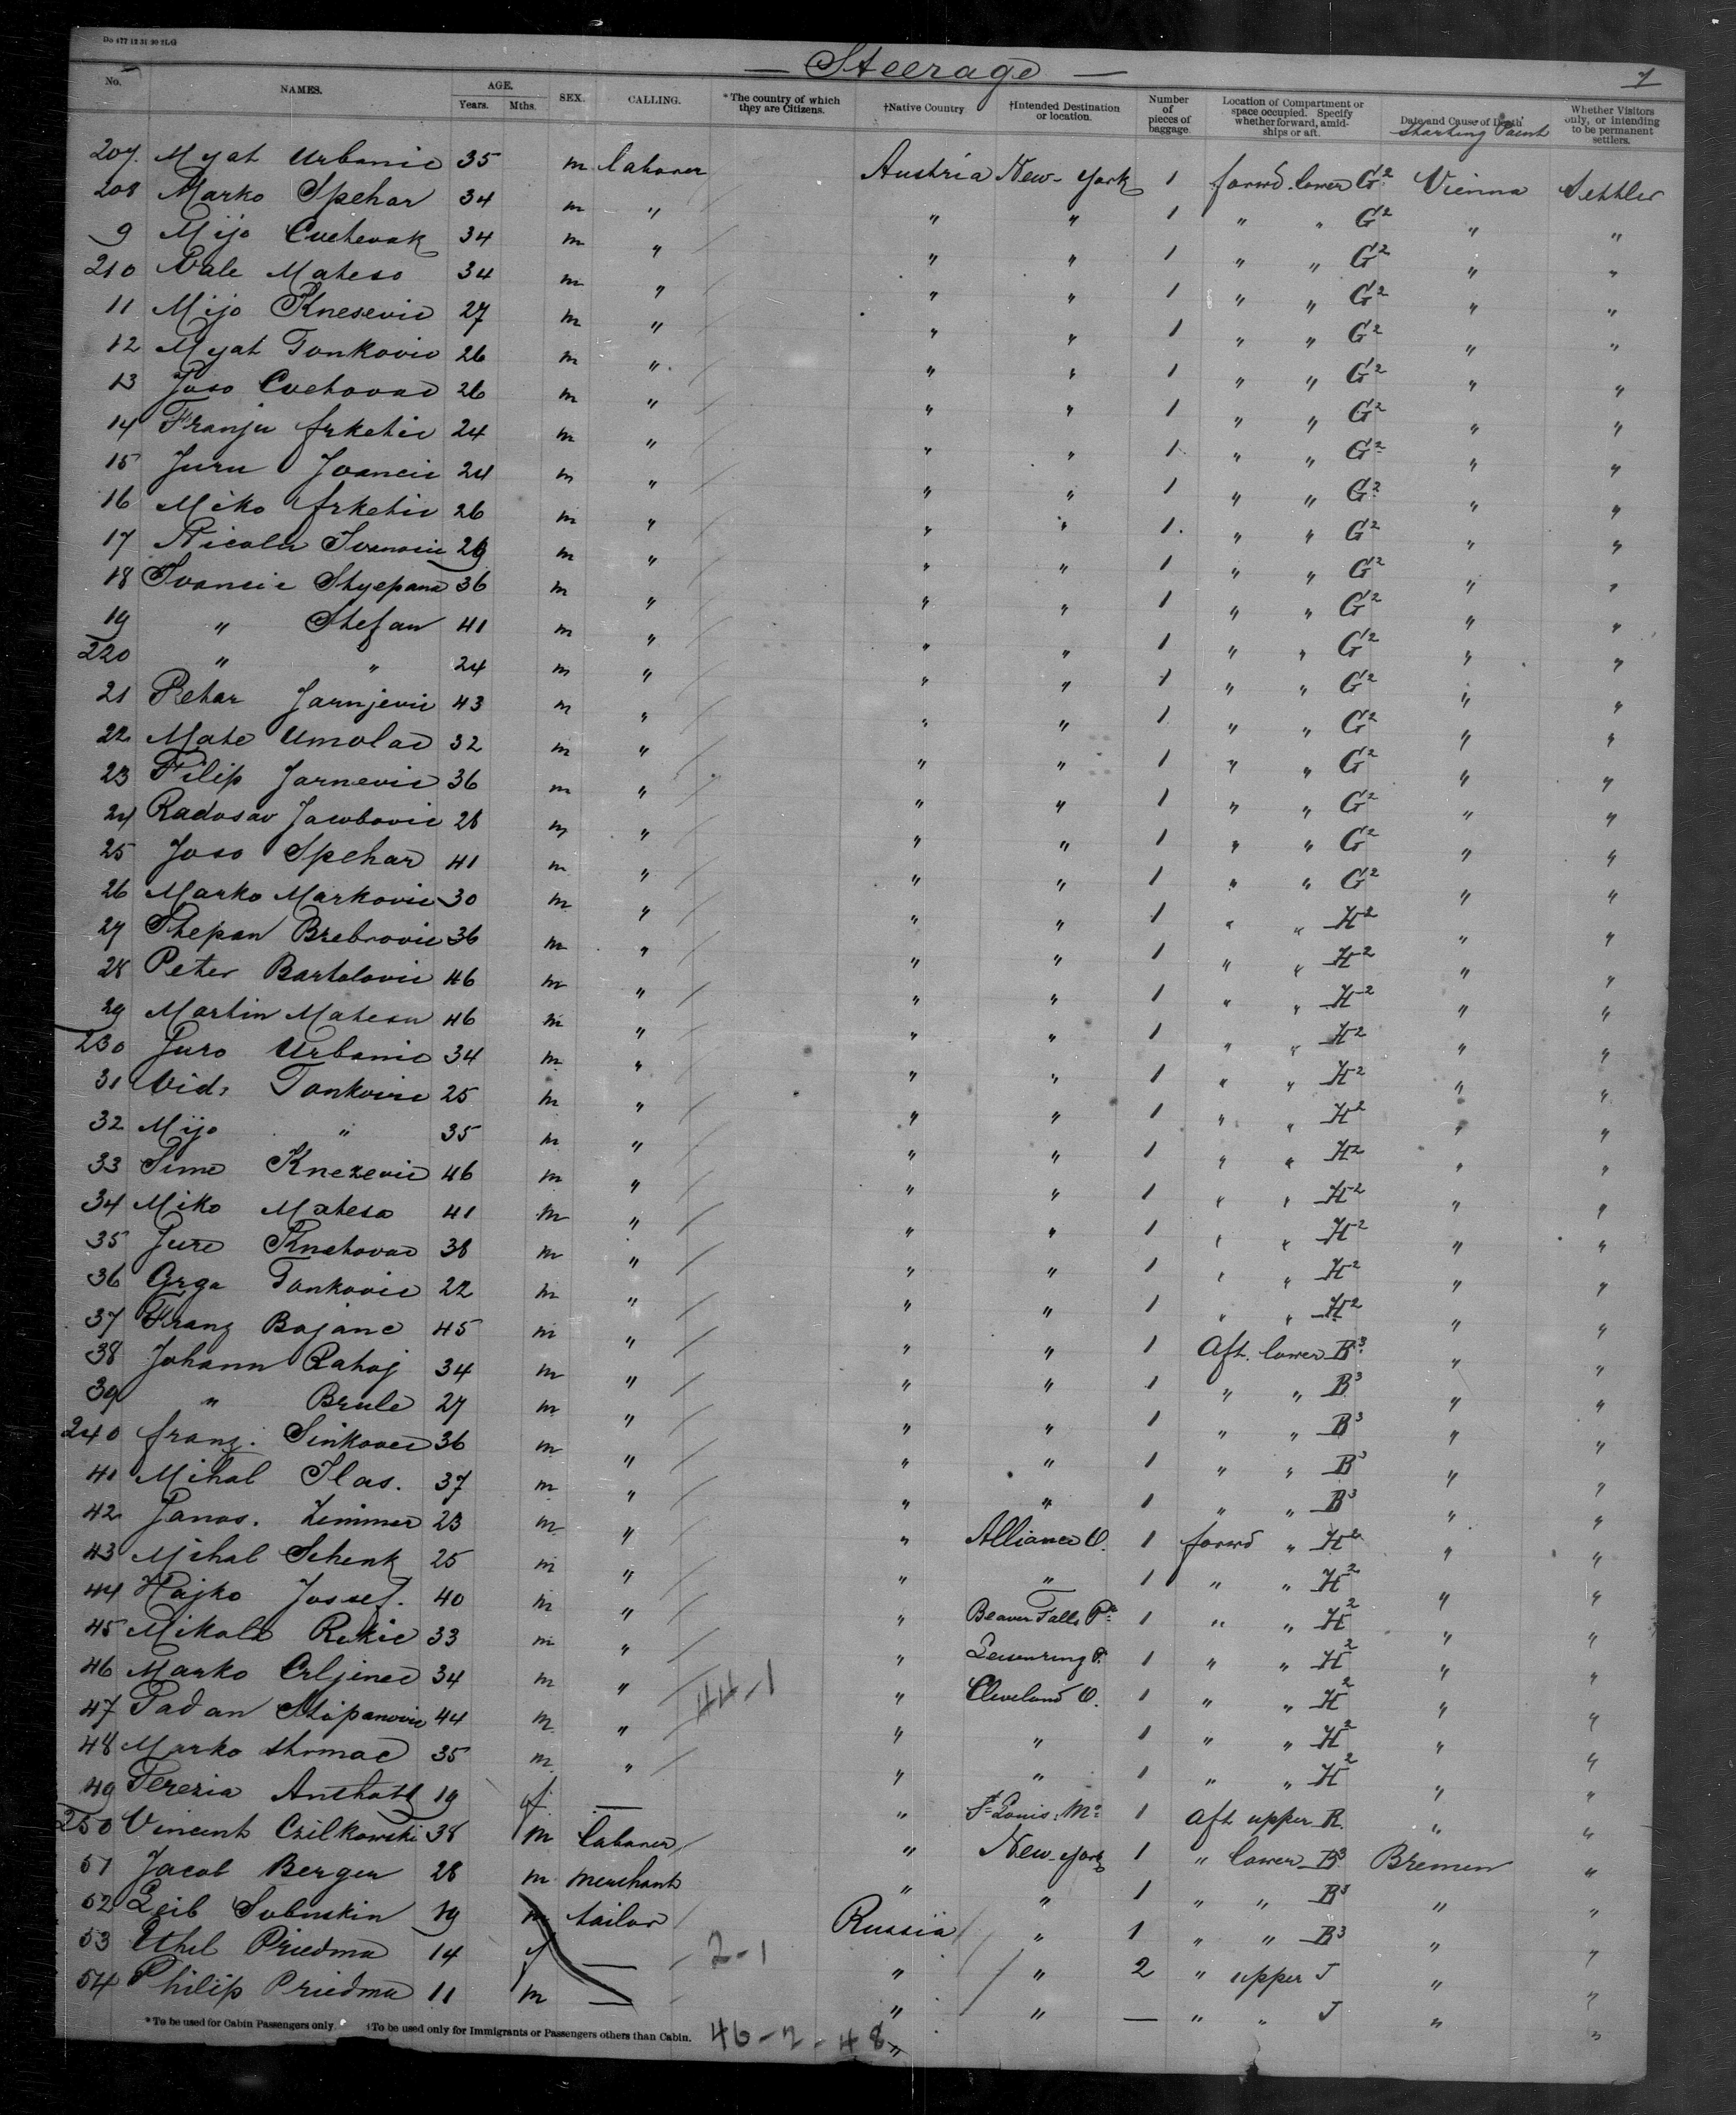 Do 477 12 31 90 2LG
— Steerage —
7
No. NAMES. AGE. Years. Mths. SEX. CALLING. *The country of which they are Citizens. †Native Country †Intended Destination or location. Number of pieces of baggage. Location of Compartment or space occupied. Specify whether forward, amidships or aft. Date and Cause of Death Starting Point Whether Visitors only, or intending to be permanent settlers.
207. Myat Urbanic 35 m laborer Austria New-York 1 forwd. lower G2 Vienna Settler
208 Marko Spehar 34 m " " " 1 " " G2 " "
9 Mijo 34 m " " " 1 " " G2 " "
210 Vale Mateso 34 m " " " 1 " " G2 " "
11 Mijo Knesevic 27 m " " " 1 " " G2 " "
12 Myat Tonkovic 26 m " " " 1 " " G2 " "
13 Joso Cvetovac 26 m " " " 1 " " G2 " "
14 Franju frketic 24 m " " " 1 " " G2 " "
15 Juru Jvancic 24 m " " " 1 " " G2 " "
16 Miko frketic 26 m " " " 1 " " G2 " "
17 Nicola 29 m " " " 1 " " G2 " "
18 Ivancic Styepana 36 m " " " 1 " " G2 " "
19 " Stefan 41 m " " " 1 " " G2 " "
220 " " 24 m " " " 1 " " G2 " "
21 Petar Jarnjevic 43 m " " " 1 " " G2 " "
22 Mate Umolac 32 m " " " 1 " " G2 " "
23 Filip Jarnevic 36 m " " " 1 " " G2 " "
24 Radosav Jacobovic 28 m " " " 1 " " G2 " "
25 Joso Spehar 41 m " " " 1 " " G2 " "
26 Marko Markovic 30 m " " " 1 " " H2 " "
27 Stepan Brebrovic 36 m " " " 1 " " H2 " "
28 Peter Bartolovic 46 m " " " 1 " " H2 " "
29 Martin Matesu 46 m " " " 1 " " H2 " "
230 Juro Urbanic 34 m " " " 1 " " H2 " "
31 Vid. 25 m " " " 1 " " H2 " "
32 Mijo " 35 m " " " 1 " " H2 " "
33 Simo Knezevic 46 m " " " 1 " " H2 " "
34 Miko Mateso 41 m " " " 1 " " H2 " "
35 Jure 38 m " " " 1 " " H2 " "
36 Grga Tonkovic 22 m " " " 1 " " H2 " "
37 Franz Bajanc 45 m " " " 1 Aft. lower B3 " "
38 Johann Rahoj 34 m " " " 1 " " B3 " "
39 " Brule 27 m " " " 1 " " B3 " "
240 franz. Sinkovec 36 m " " " 1 " " B3 " "
41 Mihal Ilas. 37 m " " " 1 " " B3 " "
42 Janos. Zimmer 23 m " " Alliance O. 1 forwd " H2 " "
43 Mihal Schenk 25 m " " " 1 " " H2 " "
44 Hajko Jossef. 40 m " " Beaver Falls Pa 1 " " H2 " "
45 Mikola Rukic 33 m " " Leisenring P. 1 " " H2 " "
46 Marko Crljenec 34 m " 44-1 " Cleveland O. 1 " " H2 " "
47 Tadan Stipanovic 44 m " " " 1 " " H2 " "
48 Marko 35 m " " " 1 " " H2 " "
49 Terezia 19 f — " St Louis. Mo 1 Aft upper R. " "
250 Vincent Czilkowski 38 m laborer " New-York 1 " lower B3 Bremen "
51 Jacob Berger 28 m merchant " " 1 " " B3 " "
52 Leib Sobuskin 19 m tailor Russia " 1 " " B3 " "
53 Ethel Priedma 14 f — 2-1 " " 2 " upper J " "
54 Philip Priedma 11 m — " " — " " J " "
*To be used for Cabin Passengers only. †To be used only for Immigrants or Passengers others than Cabin. 46-2-48 "